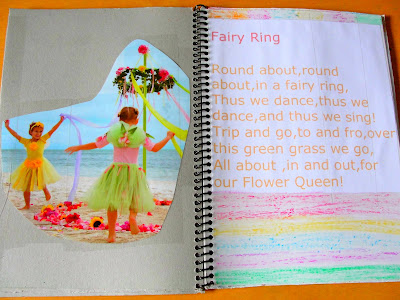 Fairy Ring
Round about,round
about,in a fairy ring,
Thus we dance,thus we
dance,and thus we sing!
Trip and go,to and fro,over
this green grass we go,
All about ,in and out,for
our Flower Queen!